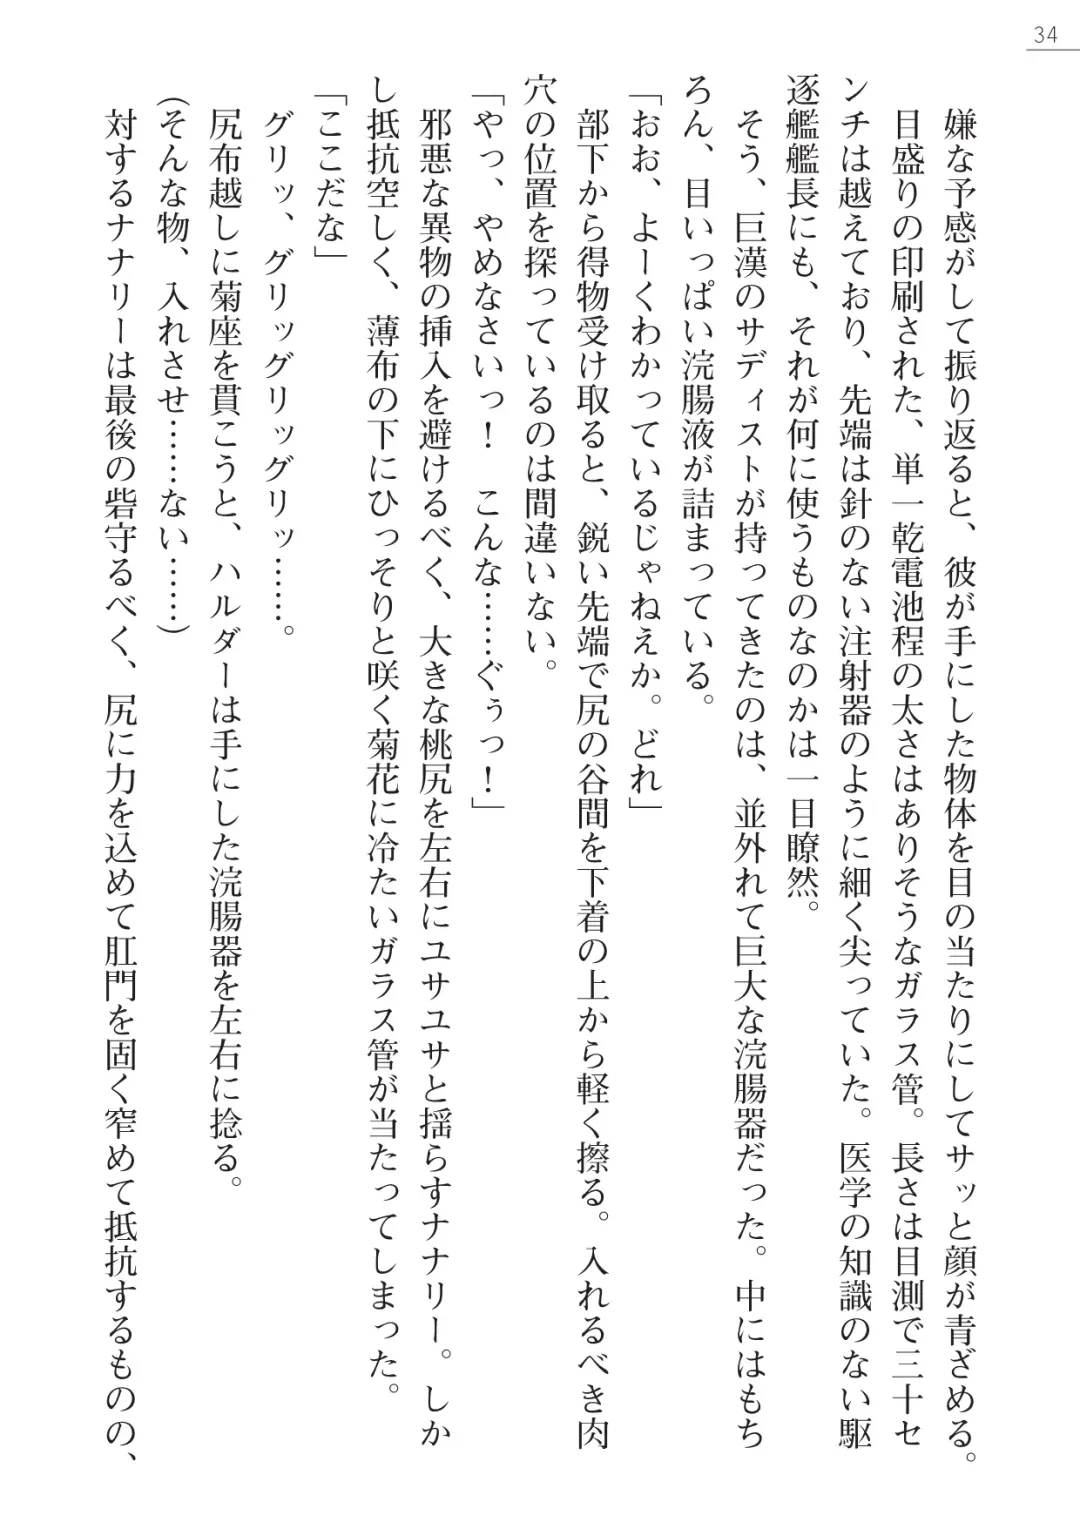 34
嫌な予感がして振り返ると、彼が手にした物体を目の当たりにしてサッと顔が青ざめる。
目盛りの印刷された、単一乾電池程の太さはありそうなガラス管。長さは目測で三十セ
ンチは越えており、先端は針のない注射器のように細く尖っていた。医学の知識のない駆
逐艦艦長にも、それが何に使うものなのかは一目瞭然。
そう、巨漢のサディストが持ってきたのは、並外れて巨大な浣腸器だった。中にはもち
ろん、目いっぱい浣腸液が詰まっている。
「おお、よーくわかっているじゃねえか。どれ」
部下から得物受け取ると、鋭い先端で尻の谷間を下着の上から軽く擦る。入れるべき肉
穴の位置を探っているのは間違いない。
「やっ、やめなさいっ！　こんな……ぐぅっ！」
邪悪な異物の挿入を避けるべく、大きな桃尻を左右にユサユサと揺らすナナリー。しか
し抵抗空しく、薄布の下にひっそりと咲く菊花に冷たいガラス管が当たってしまった。
「ここだな」
グリッ、グリッグリッグリッ……。
尻布越しに菊座を貫こうと、ハルダーは手にした浣腸器を左右に捻る。
(そんな物、入れさせ……ない……)
対するナナリーは最後の砦守るべく、尻に力を込めて肛門を固く窄めて抵抗するものの、